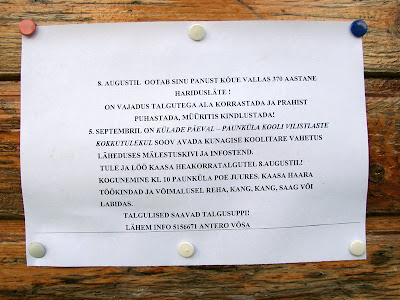 8. AUGUSTIL OOTAB SINU PANUST KÕUE VALLAS 370 AASTANE
HARIDUSLÄTE !
ON VAJADUS TALGUTEGA ALA KORRASTADA JA PRAHIST
PUHASTADA, MÜÜRITIS KINDLUSTADA!
5. SEPTEMBRIL ON KÜLADE PÄEVAL – PAUNKÜLA KOOLI VILISTLASTE
KOKKUTULEKUL SOOV AVADA KUNAGISE KOOLITARE VAHETUS
LÄHEDUSES MÄLESTUSKIVI JA INFOSTEND.
TULE JA LÖÖ KAASA HEAKORRATALGUTEL 8.AUGUSTIL!
KOGUNEMINE KL 10 PAUNKÜLA POE JUURES. KAASA HAARA
TÖÖKINDAD JA VÕIMALUSEL REHA, KANG, KANG, SAAG VÕI
LABIDAS.
TALGULISED SAAVAD TALGUSUPPI!
LÄHEM INFO 5156671 ANTERO VÕSA